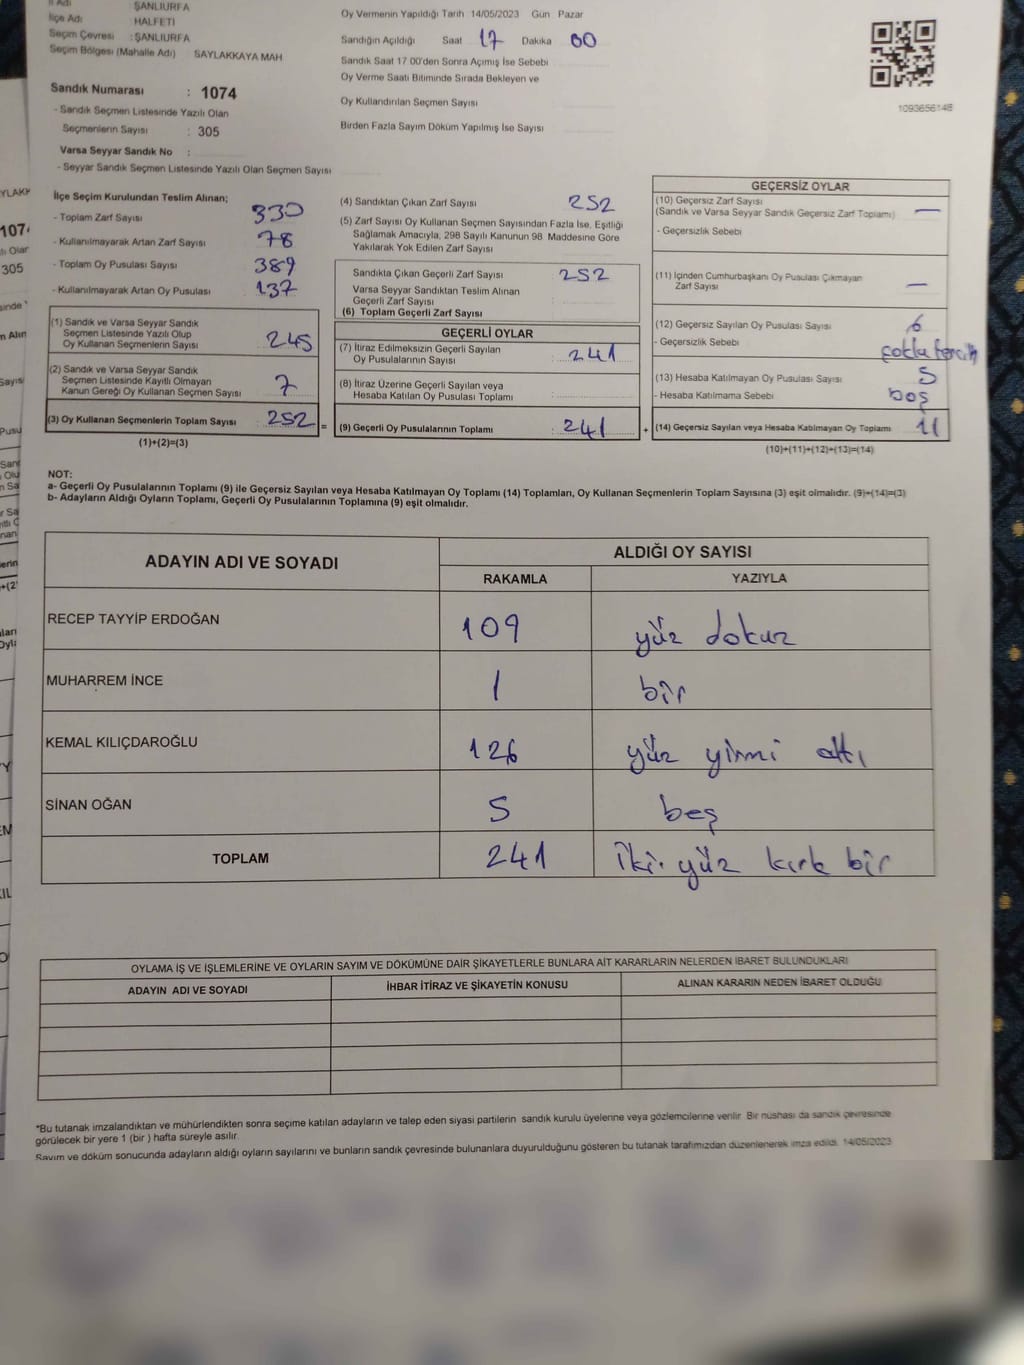 İl Adı : ŞANLIURFA
İlçe Adı : HALFETİ
Seçim Çevresi : ŞANLIURFA
Seçim Bölgesi (Mahalle Adı) SAYLAKKAYA MAH
Sandık Numarası : 1074
- Sandık Seçmen Listesinde Yazılı Olan
Seçmenlerin Sayısı : 305
Varsa Seyyar Sandık No :
- Seyyar Sandık Seçmen Listesinde Yazılı Olan Seçmen Sayısı
Oy Vermenin Yapıldığı Tarih 14/05/2023 Gün Pazar
Sandığın Açıldığı Saat 17 Dakika 00
Sandık Saat 17 00'den Sonra Açımış İse Sebebi
Oy Verme Saati Bitiminde Sırada Bekleyen ve
Oy Kullandırılan Seçmen Sayısı
Birden Fazla Sayım Döküm Yapılmış İse Sayısı
1093656148
İlçe Seçim Kurulundan Teslim Alınan;
- Toplam Zarf Sayısı 330
- Kullanılmayarak Artan Zarf Sayısı 78
- Toplam Oy Pusulası Sayısı 389
- Kullanılmayarak Artan Oy Pusulası 137
(1) Sandık ve Varsa Seyyar Sandık
Seçmen Listesinde Yazılı Olup
Oy Kullanan Seçmenlerin Sayısı 245
(2) Sandık ve Varsa Seyyar Sandık
Seçmen Listesinde Kayıtlı Olmayan
Kanun Gereği Oy Kullanan Seçmen Sayısı 7
(3) Oy Kullanan Seçmenlerin Toplam Sayısı 252 =
(1)+(2)=(3)
(4) Sandıktan Çıkan Zarf Sayısı 252
(5) Zarf Sayısı Oy Kullanan Seçmen Sayısından Fazla İse, Eşitliği
Sağlamak Amacıyla, 298 Sayılı Kanunun 98. Maddesine Göre
Yakılarak Yok Edilen Zarf Sayısı
Sandıkta Çıkan Geçerli Zarf Sayısı 252
Varsa Seyyar Sandıktan Teslim Alınan
Geçerli Zarf Sayısı
(6) Toplam Geçerli Zarf Sayısı
GEÇERLİ OYLAR
(7) İtiraz Edilmeksizin Geçerli Sayılan
Oy Pusulalarının Sayısı 241
(8) İtiraz Üzerine Geçerli Sayılan veya
Hesaba Katılan Oy Pusulası Toplamı
(9) Geçerli Oy Pusulalarının Toplamı 241 +
GEÇERSİZ OYLAR
(10) Geçersiz Zarf Sayısı
(Sandık ve Varsa Seyyar Sandık Geçersiz Zarf Toplamı) —
- Geçersizlik Sebebi
(11) İçinden Cumhurbaşkanı Oy Pusulası Çıkmayan
Zarf Sayısı —
(12) Geçersiz Sayılan Oy Pusulası Sayısı 6
- Geçersizlik Sebebi çoklu tercih
(13) Hesaba Katılmayan Oy Pusulası Sayısı 5
- Hesaba Katılmama Sebebi boş
(14) Geçersiz Sayılan veya Hesaba Katılmayan Oy Toplamı 11
(10)+(11)+(12)+(13)=(14)
NOT:
a- Geçerli Oy Pusulalarının Toplamı (9) ile Geçersiz Sayılan veya Hesaba Katılmayan Oy Toplamı (14) Toplamları, Oy Kullanan Seçmenlerin Toplam Sayısına (3) eşit olmalıdır. (9)+(14)=(3)
b- Adayların Aldığı Oyların Toplamı, Geçerli Oy Pusulalarının Toplamına (9) eşit olmalıdır.
ADAYIN ADI VE SOYADI ALDIĞI OY SAYISI
RAKAMLA YAZIYLA
RECEP TAYYİP ERDOĞAN 109 yüz dokuz
MUHARREM İNCE 1 bir
KEMAL KILIÇDAROĞLU 126 yüz yirmi altı
SİNAN OĞAN 5 beş
TOPLAM 241 iki yüz kırk bir
OYLAMA İŞ VE İŞLEMLERİNE VE OYLARIN SAYIM VE DÖKÜMÜNE DAİR ŞİKAYETLERLE BUNLARA AİT KARARLARIN NELERDEN İBARET BULUNDUKLARI
ADAYIN ADI VE SOYADI İHBAR İTİRAZ VE ŞİKAYETİN KONUSU ALINAN KARARIN NEDEN İBARET OLDUĞU
*Bu tutanak imzalandıktan ve mühürlendikten sonra seçime katılan adayların ve talep eden siyasi partilerin sandık kurulu üyelerine veya gözlemcilerine verilir. Bir nüshası da sandık çevresinde
görülecek bir yere 1 (bir ) hafta süreyle asılır.
Sayım ve döküm sonucunda adayların aldığı oyların sayılarını ve bunların sandık çevresinde bulunanlara duyurulduğunu gösteren bu tutanak tarafımızdan düzenlenerek imza edildi. 14/05/2023